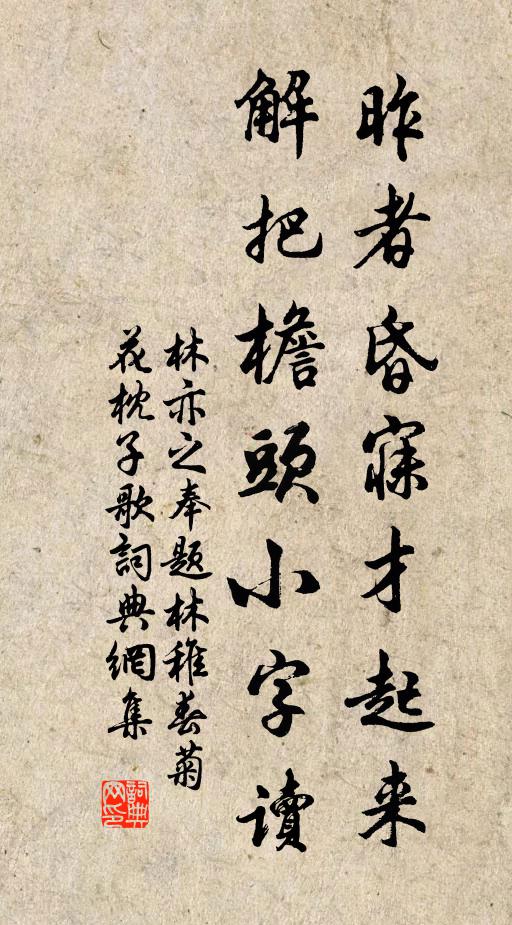 昨者昏寐才起来
解把檐頭小字讀
林亦之奉题林稚春菊
花枕子歌詞典網集
詞典网印